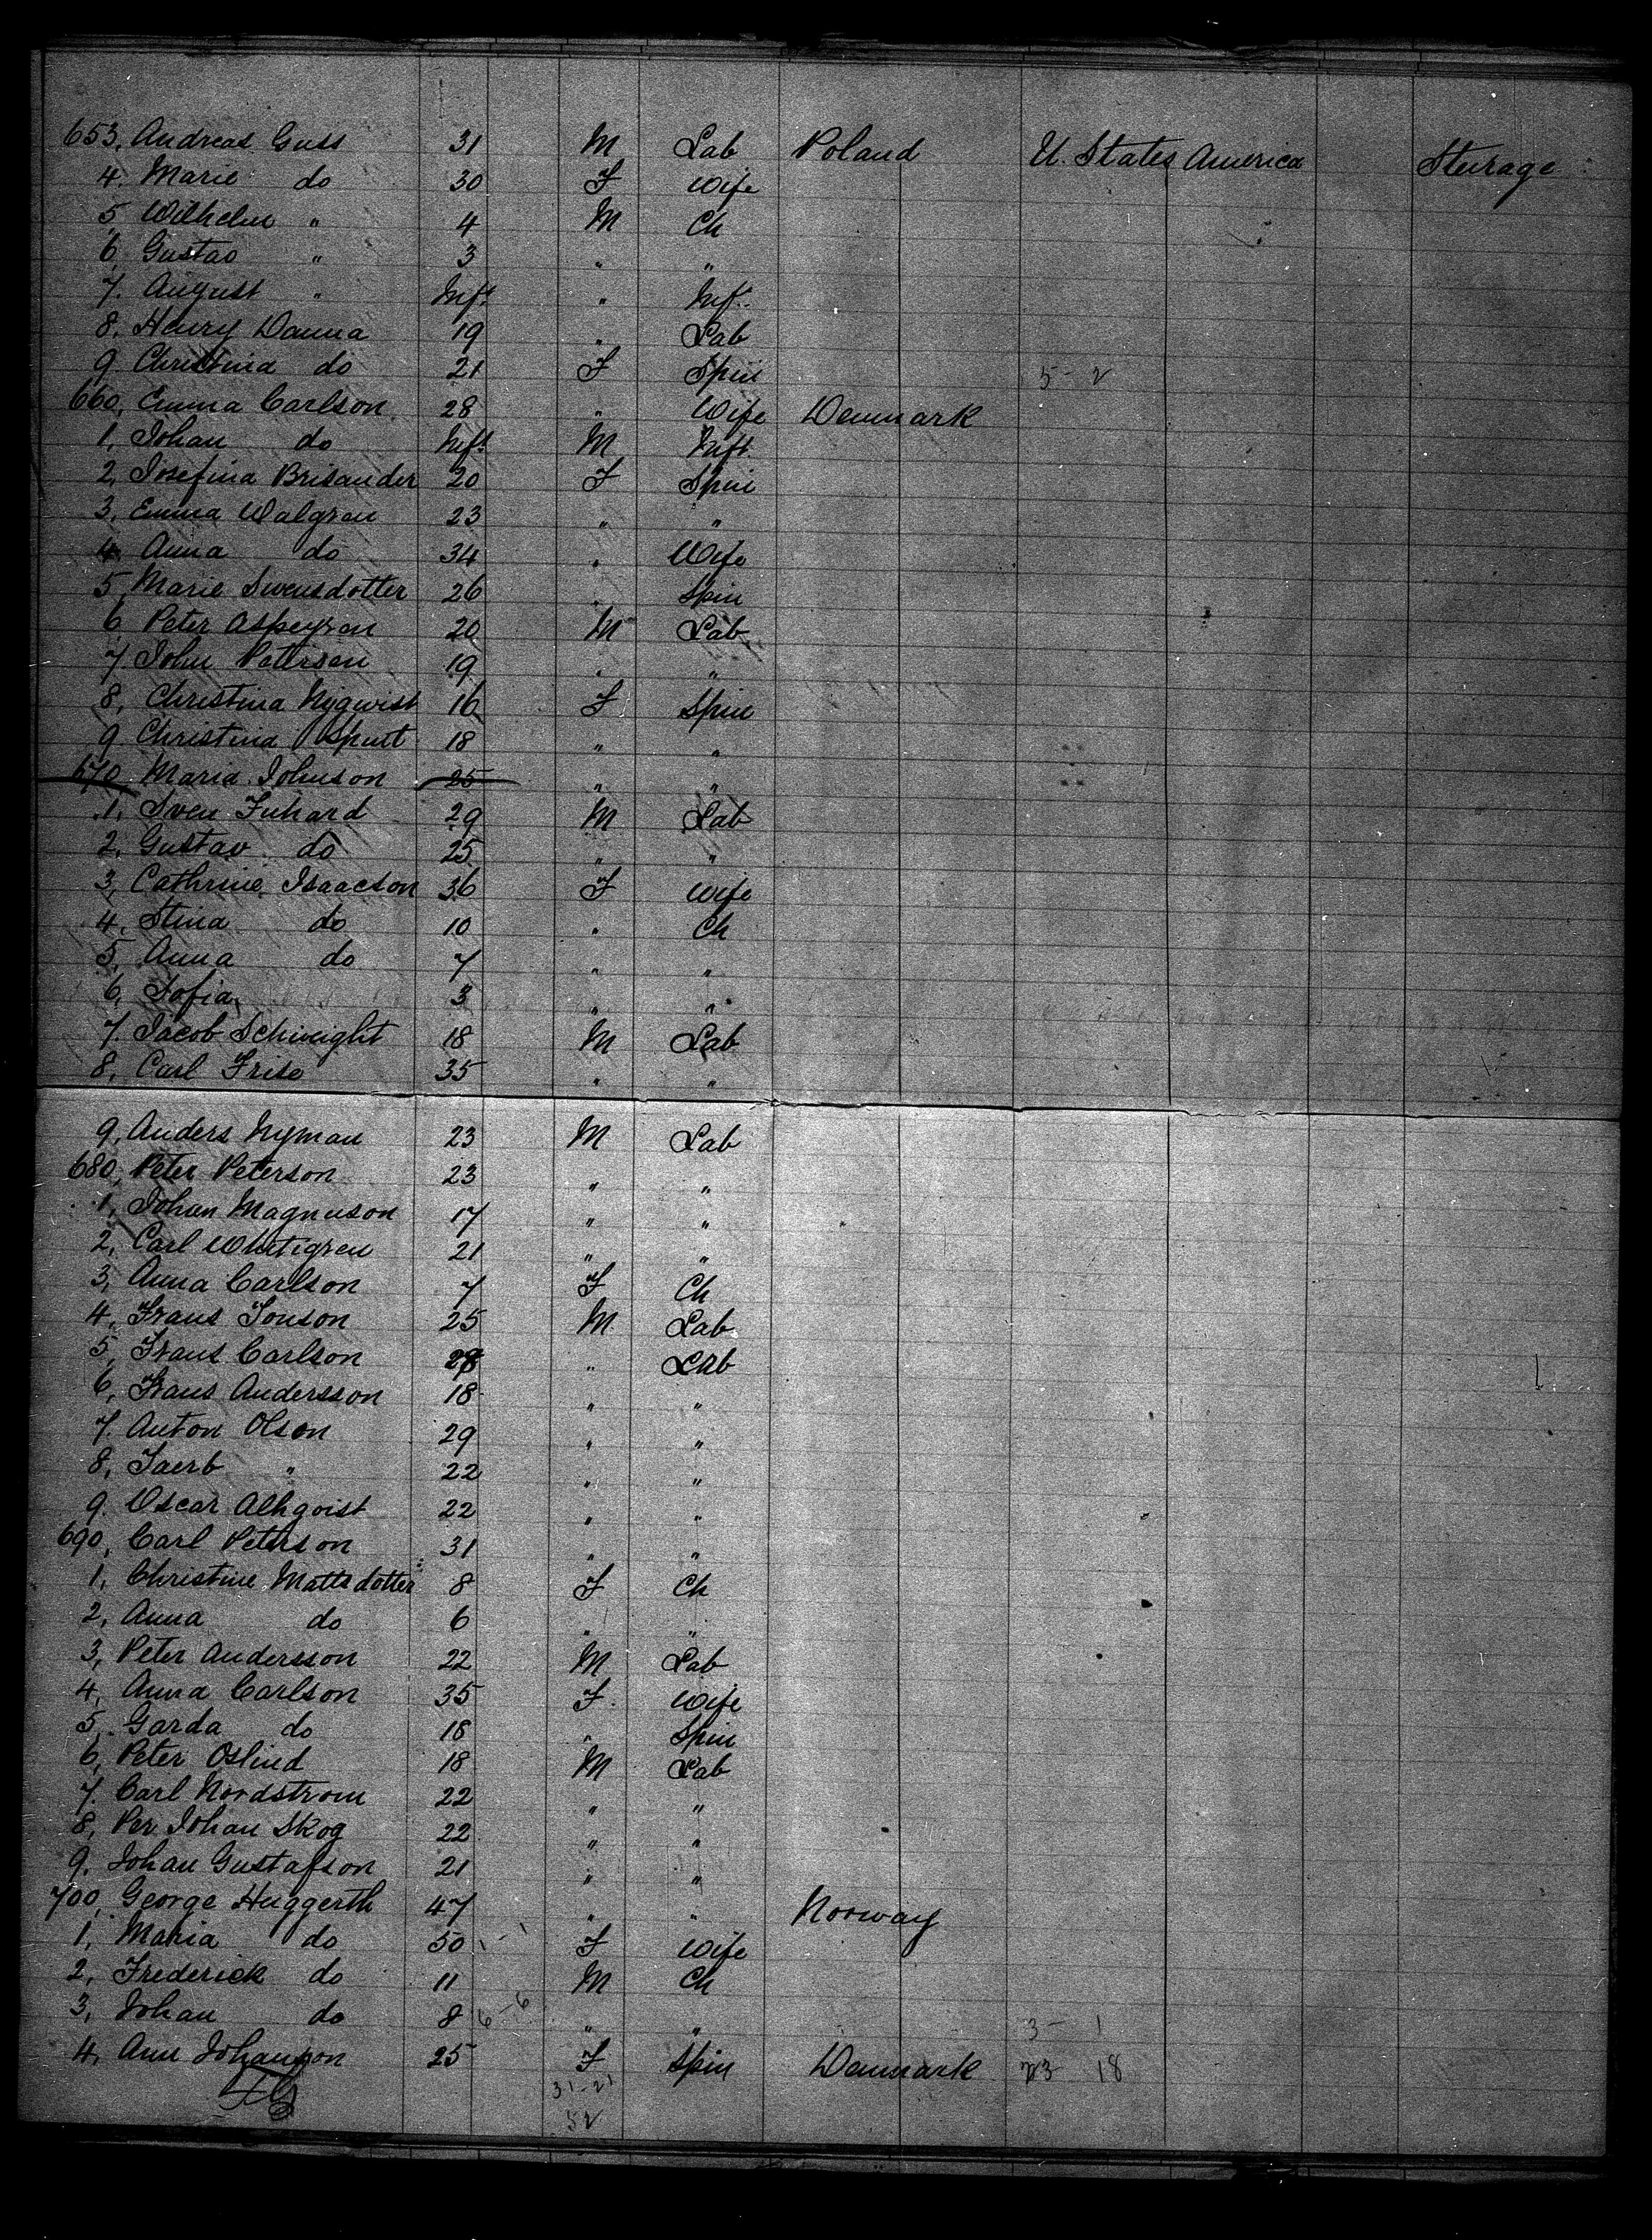 653, Andreas Guss 31 M Lab Poland U. States America Sturage
4. Marie do 30 F Wife
5, Wilhelm " 4 M Ch
6, Gustav " 3 " "
7. August " Inft " Inft.
8, Henry Danna 19 " Lab
9. Christina do 21 F Spin 5-2
660, Emma Carlson 28 " Wife Denmark
1, Johan do Inft M Inft.
2, Josefina Brisander 20 F Spin
3, Emma Walgren 23 " "
4. Anna do 34 " Wife
5, Marie Swensdotter 26 " Spin
6 Peter Aspegren 20 M Lab
7 John Patersen 19 " "
8, Christina Nyqwist 16 F Spin
9. Christina 18 " "
670 Maria Johnson 25 " "
1, Sven Fuhard 29 M Lab
2, Gustav do 25 " "
3, Cathrine Isaacson 36 F Wife
4, Stina do 10 " Ch
5, Anna do 7 " "
6, Sofia 3 " "
7. Jacob Schweight 18 M Lab
8, Carl Frise 35 " "
9, Anders Nyman 23 M Lab
680, Peter Peterson 23 " "
1, Johan Magnuson 17 " "
2, Carl Whitigren 21 " "
3, Anna Carlson 7 F Ch
4, Frans Jonson 25 M Lab
5, Frans Carlson 28 " Lab
6, Frans Andersson 18 " "
7. Anton Olson 29 " "
8, " 22 " "
9. Oscar Alhqoist 22 " "
690, Carl Peterson 31 " "
1, Christine Mattsdotter 8 F Ch
2, Anna do 6 " "
3, Peter Andersson 22 M Lab
4, Anna Carlson 35 F Wife
5, Garda do 18 " Spin
6, Peter Oslind 18 M Lab
7. Carl Nordstrom 22 " "
8, Per Johan Skog 22 " "
9. Johan Gustafson 21 " "
700, George Huggerth 47 " " Norway
1, Maria do 50 1-1 F Wife
2, Frederick do 11 M Ch
3, Johan do 8 6-6 " " 3-1
4, Ann Johanson 25 F Spin Denmark 23 18
31-21
52